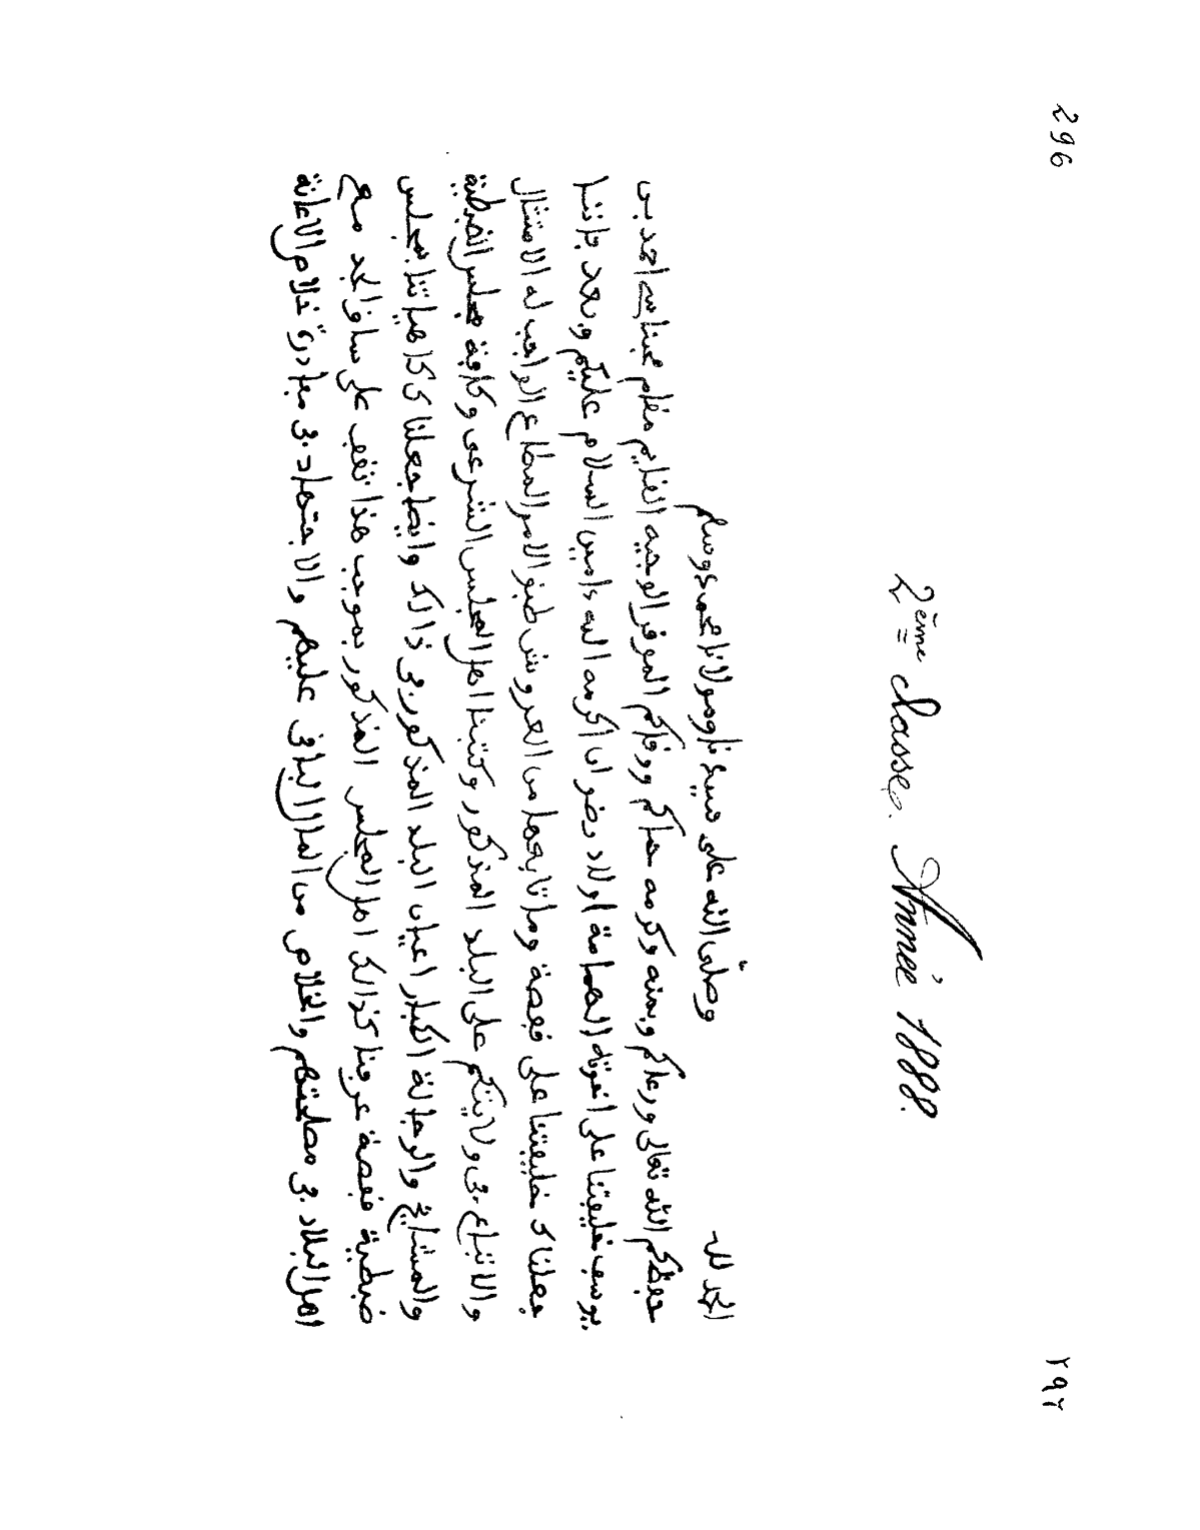 296
٢٩٦
2ème classe. Année 1888.
الحمد لله وصلى الله على سيدنا ومولانا محمد وسلم
حفظكم الله تعالى ورعاكم وبمنه وكرمه حماكم ووقاكم الموفر الوجيه الفايم مقام محبنا سي احمد بن
يوسف خليفتنا على اخوته الهمامة اولاد رضوان اكرمه الله ءامين السلام عليكم وبعد فاننا
جعلناك خليفتنا على قفصة وما تابعها من العروش طبق الامر المطاع الواجب له الامتثال
والاتباع في ولايتكم على البلد المذكور وكتبنا اهل المجلس الشرعي وكافة مجلس الضبطية
والمشايخ والرجالة الكبار اعيان البلد المذكور في ذالك وايضا جعلناك كاهياتنا بمجلس
ضبطية قفصة عرفنا كذالك اهل المجلس المذكور بموجب هذا تقف على ساق الجد مع
اهل البلاد في مصلحتهم والخلاص من المال الباقي عليهم والاجتهاد في مبادرة خلاص الاعانة